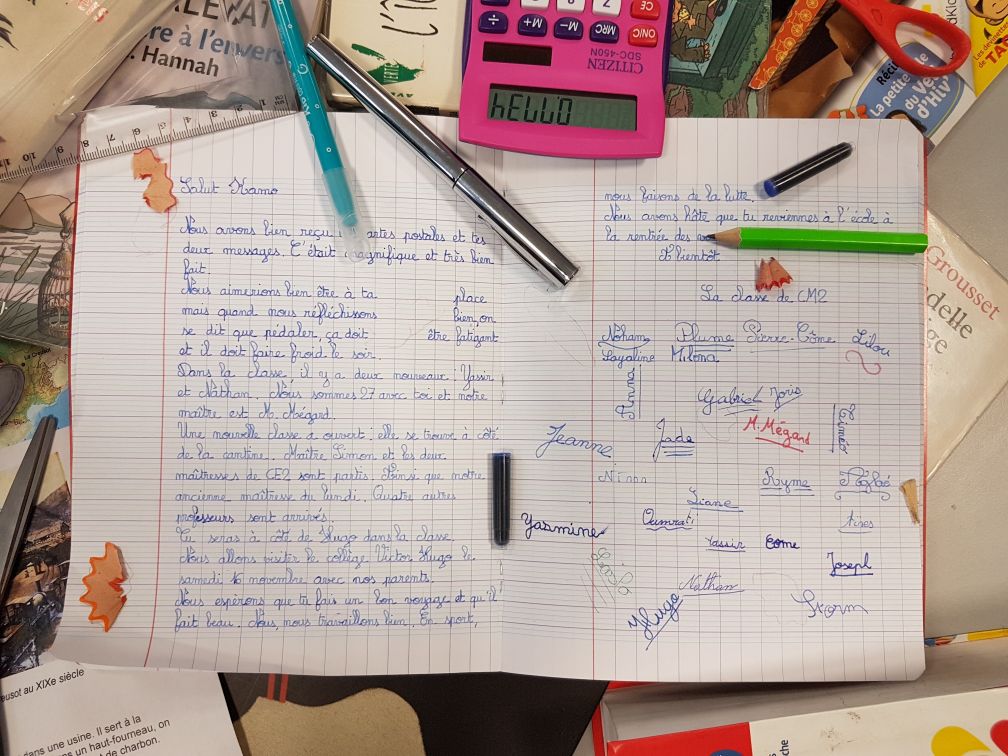 ère à l'envers
. Hannah
L'îl
CITIZEN
SDC-450N
ON/C
CE
MRC
M-
M+
÷
hELLO
Réci
la petite
du Ve
d'Hiv
Les devinettes
de TA
10 9 8 7 6 5 4 3 2 1
Salut Kamo
Nous avons bien reçu artes postales et tes
deux messages. C'était magnifique et très bien
fait.
Nous aimerions bien être à ta place
mais quand nous réfléchissons bien, on
se dit que pédaler, ça doit être fatigant
et il doit faire froid le soir.
Dans la classe, il y a deux nouveaux : Yassir
et Nathan. Nous sommes 27 avec toi et notre
maître est M. Mégard.
Une nouvelle classe a ouvert : elle se trouve à côté
de la cantine. Maître Simon et les deux
maîtresses de CE2 sont partis. Ainsi que notre
ancienne maîtresse du lundi. Quatre autres
professeurs sont arrivés.
Tu seras à côté de Hugo dans la classe.
Nous allons visiter le collège Victor Hugo le
samedi 16 novembre avec nos parents.
Nous espérons que tu fais un bon voyage et qu'il
fait beau. Nous, nous travaillons bien. En sport,
nous faisons de la lutte.
Nous avons hâte que tu reviennes à l'école à
la rentrée des
A bientôt
La classe de CM2
Noham Plume Pierre-Côme Lilou
Layaline Miléna
Anna
Gabriel Joris
Timéo
Jeanne Jade M. Mégard
Ninon Ryme Aglaé
Liane
Yazmine Oumrati Aines
Yassir Côme
Joseph
Nathan
Hugo Storm
Grousset
delle
ge
eusot au XIXe siècle
dans une usine. Il sert à la
ns un haut-fourneau, on
t de charbon.
che